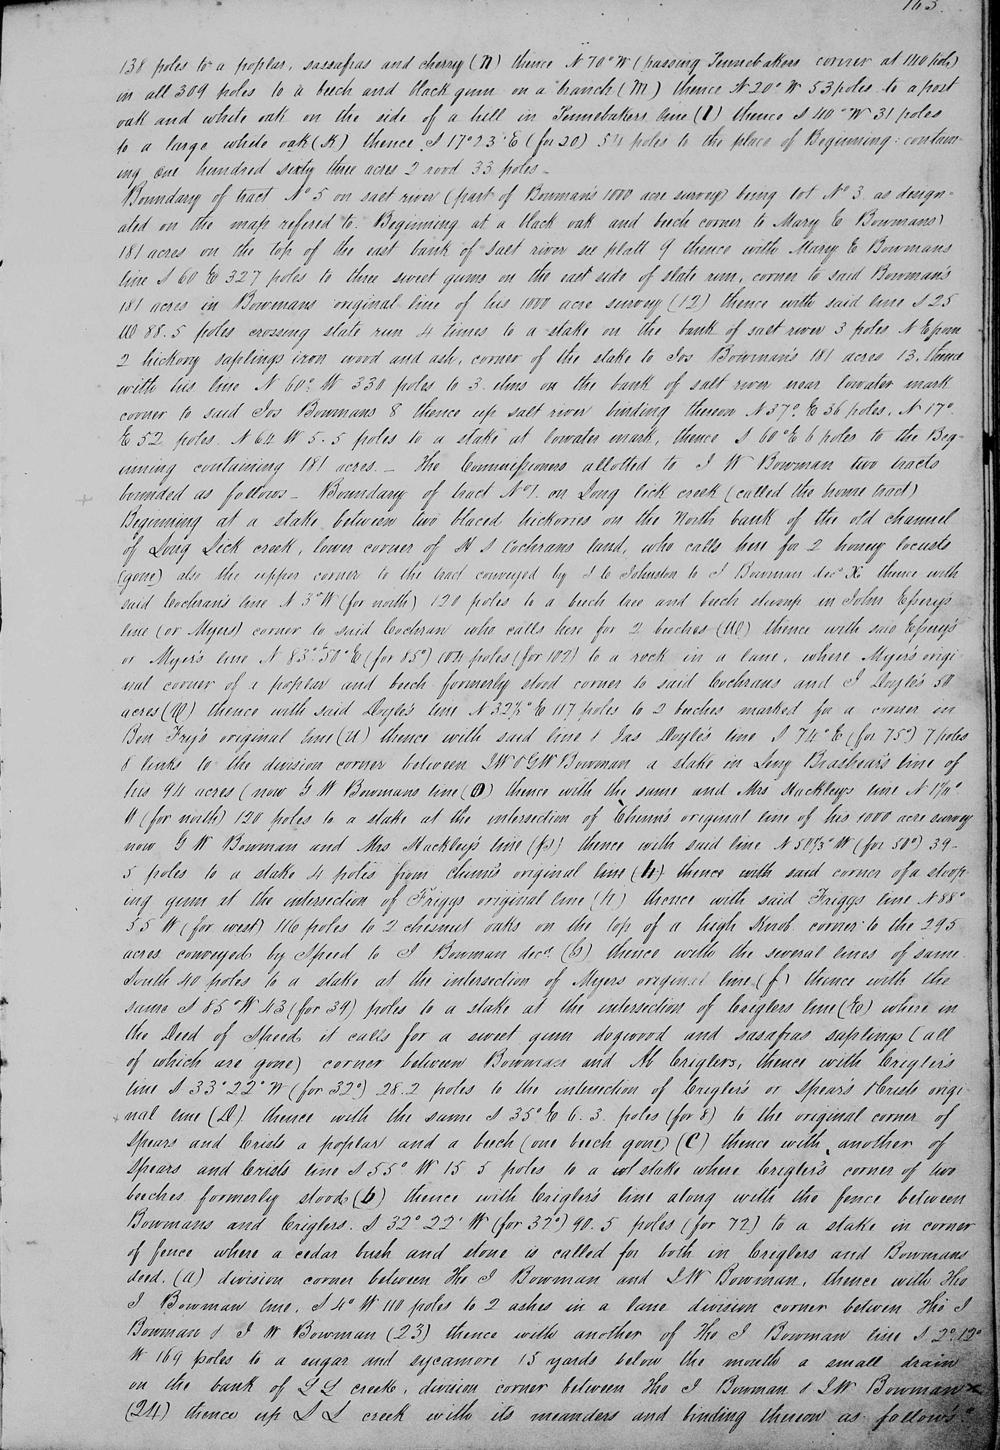 163.
138 poles to a poplar, sassafras and cherry (N) thence N 70° W (passing Pennebakers corner at 140 poles)
in all 309 poles to a beech and black gum on a branch (M) thence N 20° W 53 poles to a post
oak and white oak on the side of a hill in Pennebakers line (L) thence S 40° W 31 poles
to a large white oak (K) thence S 17° 23' E (for 20) 54 poles to the place of Beginning: contain-
ing one hundred sixty three acres 2 rood 33 poles_
Boundary of tract No 5 on salt river (part of Bowman's 1000 acre survey) being lot No 3. as design-
ated on the map refered to. Beginning at a black oak and beech corner to Mary E Bowmans
181 acres on the top of the east bank of salt river see platt 9 thence with Mary E Bowmans
line S 60 E 327 poles to three sweet gums on the east side of slate run, corner to said Bowman's
181 acres in Bowmans original line of his 1000 acre survey (12) thence with said line S 25
W 88.5 poles crossing slate run 4 times to a stake on the bank of salt river 3 poles N E from
2 hickory saplings iron wood and ash, corner of the stake to Jos Bowman's 181 acres 13. thence
with his line N 60° W 330 poles to 3 elms on the bank of salt river near lowater mark
corner to said Jos Bowmans 8 thence up salt river binding thereon N 37° E 36 poles, N 17°
E 52 poles. N 64 W 5.5 poles to a stake at lowater mark, thence S 60° E 6 poles to the Beg-
inning containing 181 acres._ The Commissioners allotted to J W Bowman two tracts
bounded as follows_ Boundary of tract No 1. on Long lick creek (called the home tract)
Beginning at a stake between two blaced hickories on the North bank of the old channel
of Long Lick creek, lower corner of H S Cochrans land, who calls here for 2 honey locusts
(gone) also the upper corner to the tract conveyed by J C Johnston to J Bowman decd X thence with
said Cochran's line N 3° W (for north) 120 poles to a beech tree and beech stump in John Esperys
line (or Myers) corner to said Cochran who calls here for 2 beeches (W) thence with said Espery's
or Myer's line N 83° 50° E (for 85°) 104 poles (for 102) to a rock in a lane, where Myer's origi-
nal corner of a poplar and beech formerly stood corner to said Cochrans and J Doyle's 50
acres (V) thence with said Doyle's line N 32½° E 117 poles to 2 beeches marked for a corner in
Ben Fry's original line (U) thence with said line & Jas Doyle's line S 74° E (for 75°) 7 poles
8 links to the division corner between J W & G W Bowman a stake in Levy Brashear's line of
his 94 acres (now G W Bowmans line (O) thence with the same and Mrs Mackleys line N 1½°
W (for north) 120 poles to a stake at the intersection of Chinn's original line of his 1000 acre survey
now G W Bowman and Mrs Mackley's line (p) thence with said line N 50½° W (for 50°) 39-
5 poles to a stake 4 poles from Chinn's original line (h) thence with said corner of a stoop-
ing gum at the intersection of Friggs original line (h) thence with said Friggs line N 88°
55 W (for west) 116 poles to 2 chesnut oaks on the top of a high Knob corner to the 295
acres conveyed by Speed to J Bowman decd (G) thence with the several lines of same
South 40 poles to a stake at the intersection of Myers original line (f) thence with the
same S 85° W 43 (for 39) poles to a stake at the intersection of Criglers line (E) where in
the Deed of Speed it calls for a sweet gum dogwood and sasafras saplings (all
of which are gone) corner between Bowman and M Criglers, thence with Crigler's
line S 33° 22° W (for 32°) 28.2 poles to the intersection of Crigler's or Spear's & Crists origi-
nal line (D) thence with the same S 35° E 6.3. poles (for 8) to the original corner of
Spears and Crists a poplar and a beech (one beech gone) (C) thence with another of
Spears and Crists line S 55° W 15 5 poles to a stake where Crigler's corner of two
beeches formerly stood (b) thence with Crigler's line along with the fence between
Bowmans and Criglers. S 32° 22' W (for 32°) 90.5 poles (for 72) to a stake in corner
of fence where a cedar bush and stone is called for both in Creglers and Bowmans
deed. (A) division corner between Tho J Bowman and J W Bowman, thence with Tho
J Bowman line. S 4° W 110 poles to 2 ashes in a lane division corner betwen Tho J
Bowman & J W Bowman (23) thence with another of Tho J Bowman line S 2° 12°
W 169 poles to a sugar and sycamore 15 yards below the mouth a small drain
on the bank of L L creek, division corner between Tho J Bowman & J W Bowman x
(24) thence up L L creek with its meanders and binding thereon as follows: